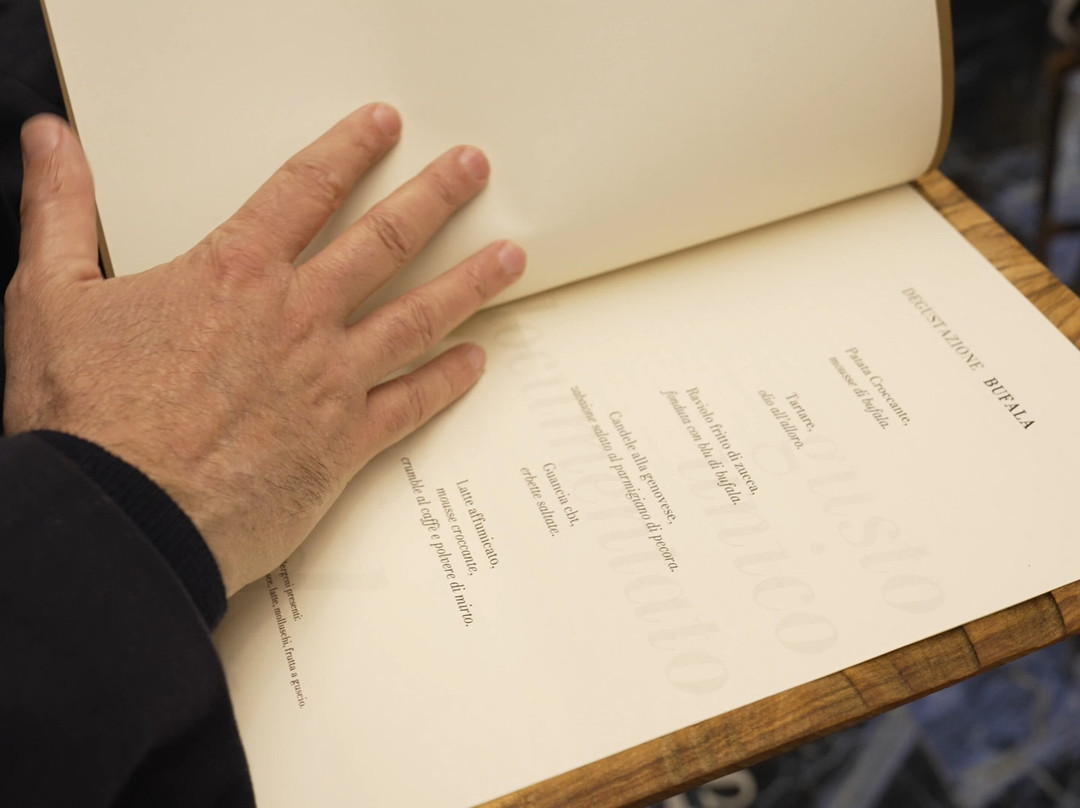 DEGUSTAZIONE BUFALA
Patata Croccante,
mousse di bufala.
Tartare,
olio all'alloro.
Raviolo fritto di zucca,
fonduta con blu di bufala.
Candele alla genovese,
zabaione salato al parmigiano di pecora.
Guancia cbt,
erbette saltate.
Latte affumicato,
mousse croccante,
crumble al caffè e polvere di mirto.
presenti:
latte, molluschi, frutta a guscio.
gusto
unico